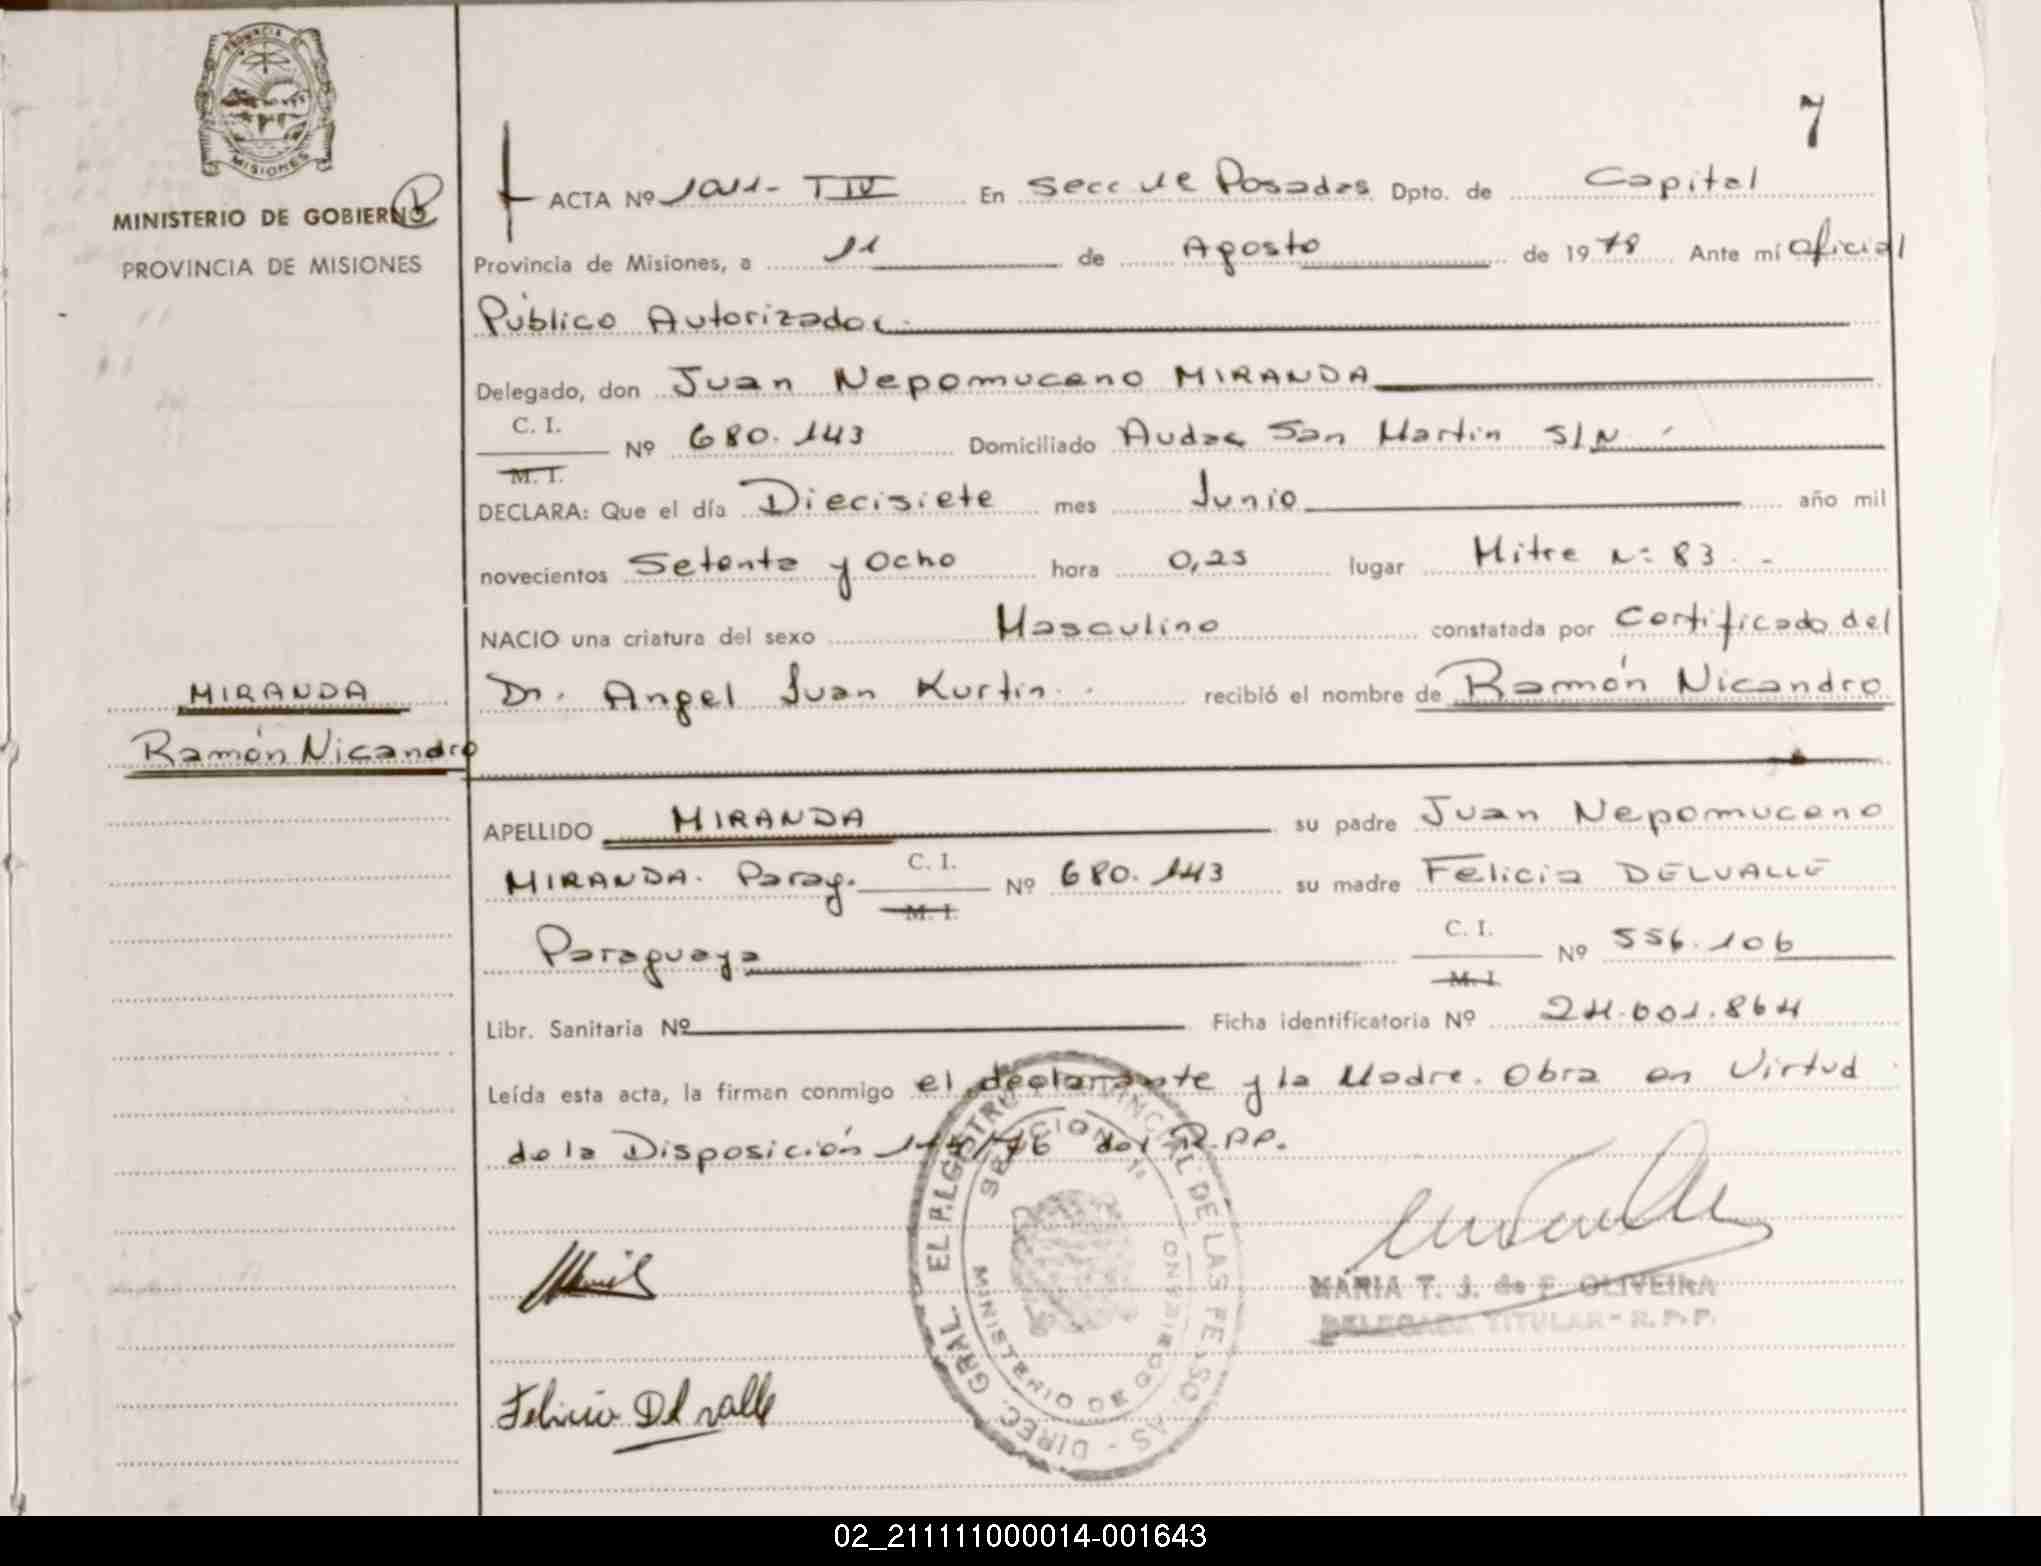 PROVINCIA DE
MISIONES
MINISTERIO DE GOBIERNO
PROVINCIA DE MISIONES
7
ACTA Nº 1011- T IV En Secc de Posadas Dpto. de Capital
Provincia de Misiones, a 11 de Agosto de 1978 Ante mí Oficial
Público Autorizador.
Delegado, don Juan Nepomuceno MIRANDA
C. I.
M. I.
Nº 680.143 Domiciliado Avda San Martin S/N.
DECLARA: Que el día Diecisiete mes Junio año mil
novecientos Setenta y Ocho hora 0,25 lugar Mitre Nº 83.-
NACIO una criatura del sexo Masculino constatada por Certificado del
Dr. Angel Juan Kurtin. recibió el nombre de Ramón Nicandro
MIRANDA
Ramón Nicandro
APELLIDO MIRANDA su padre Juan Nepomuceno
MIRANDA. Parag. C. I. M. I. Nº 680.143 su madre Felicia DELVALLE
Paraguaya C. I. M. I. Nº 556.106
Libr. Sanitaria Nº Ficha identificatoria Nº 24.601.864
Leída esta acta, la firman conmigo el declarante y la Madre. Obra en Virtud
de la Disposición /76 del R.PP.
DIREC. GRAL. DEL REGISTRO PROVINCIAL DE LAS PERSONAS
SECCION 1ª
MINISTERIO DE GOBIERNO
MARIA T. J. de F. OLIVEIRA
DELEGADA TITULAR - R.P.P.
Felicia Delvalle
02_211111000014-001643